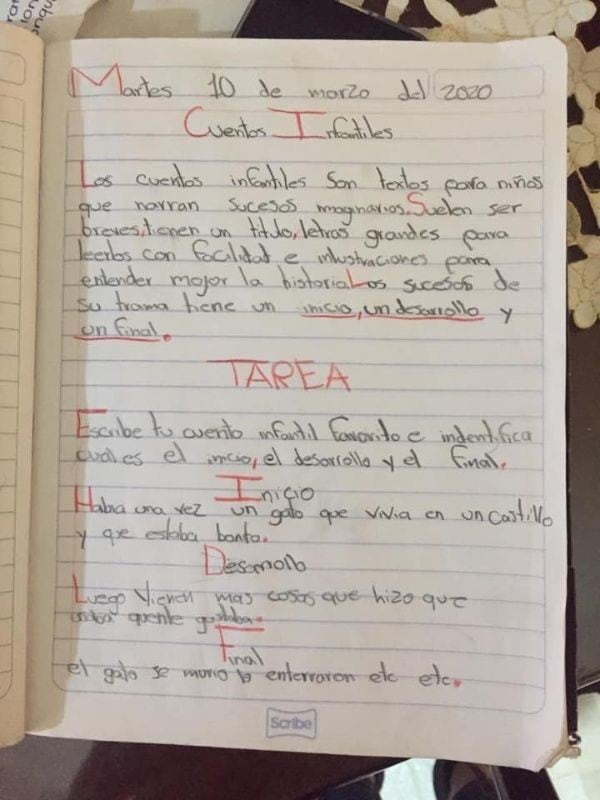 Martes 10 de marzo del 2020
Cuentos Infantiles
Los cuentos infantiles son textos para niños
que narran sucesos imaginarios. Suelen ser
breves, tienen un titulo, letras grandes para
leerlos con facilidad e inlustraciones para
entender mojor la historia. Los sucesos de
su trama tiene un inicio, un desarrollo y
un final.
TAREA
Escribe tu cuento infantil favorito e indentifica
cual es el inicio, el desarrollo y el final.
Inicio
Habia una vez un gato que vivia en un castillo
y que estaba bonto.
Desarrollo
Luego vienen mas cosas que hizo que
gustaba.
Final
el gato se murio lo enterraron etc etc.
Scribe